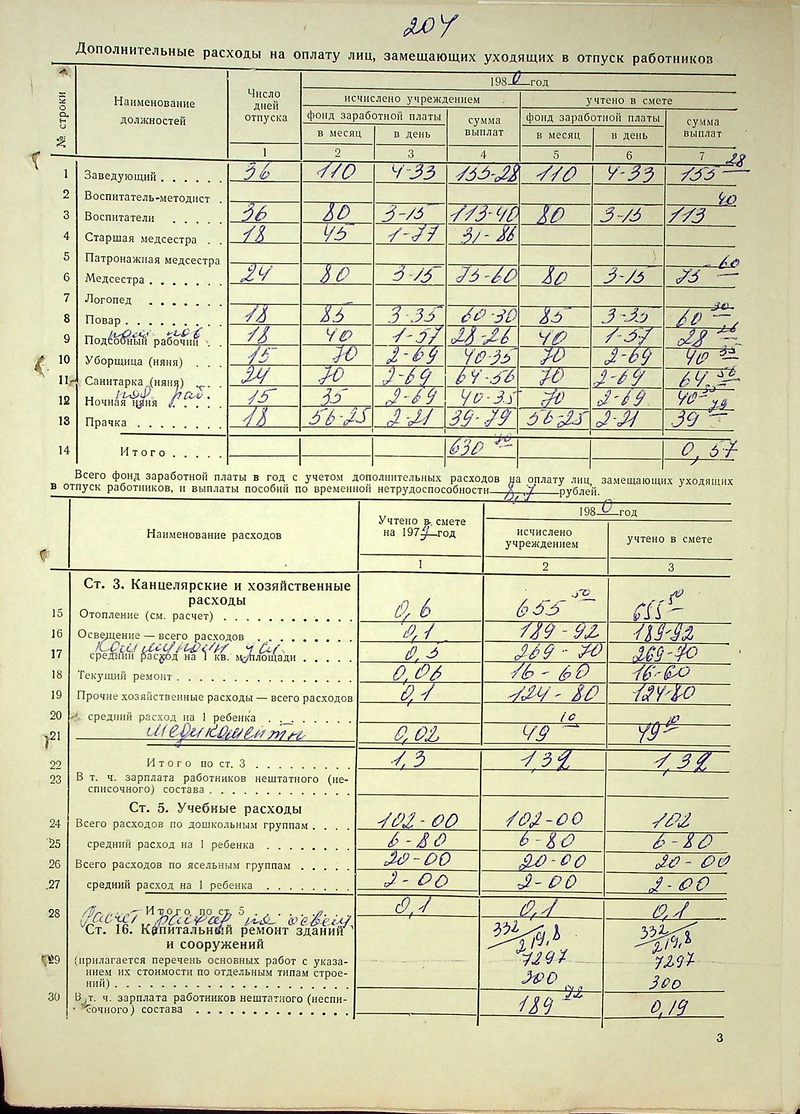 204
Дополнительные расходы на оплату лиц, замещающих уходящих в отпуск работников
№ строки
Наименование должностей
Число дней отпуска
1980 год
исчислено учреждением
учтено в смете
фонд заработной платы
сумма выплат
фонд заработной платы
сумма выплат
в месяц
в день
в месяц
в день
1 2 3 4 5 6 7
1 Заведующий 36 110 4-33 155-28 110 4-33 155 28
2 Воспитатель-методист
3 Воспитатели 36 80 3-15 113-40 80 3-15 113 40
4 Старшая медсестра 18 45 1-77 31-86
5 Патронажная медсестра
6 Медсестра 24 80 3-15 75-60 80 3-15 75 60
7 Логопед
8 Повар 18 85 3-35 60-30 85 3-35 60 30
9 Подсобный рабочий 18 40 1-57 28-26 40 1-57 28 26
10 Уборщица (няня) 15 70 2-69 40-35 70 2-69 40 35
11 Санитарка (няня) 24 70 2-69 64-56 70 2-69 64 56
12 Ночная няня 15 35 2-69 40-35 70 2-69 40 35
13 Прачка 18 56-25 2-21 39-79 56-25 2-21 39 79
14 Итого 630 0,57
Всего фонд заработной платы в год с учетом дополнительных расходов на оплату лиц, замещающих уходящих
в отпуск работников, и выплаты пособий по временной нетрудоспособности рублей.
Наименование расходов
Учтено в смете на 1979 год
1980 год
исчислено учреждением
учтено в смете
1 2 3
Ст. 3. Канцелярские и хозяйственные
расходы
15 Отопление (см. расчет) 0,6 655 50 655 50
16 Освещение — всего расходов 0,1 189-92 189-92
17 средний расход на 1 кв. м площади 0,5 269-70 269-70
18 Текущий ремонт 0,06 16-60 16-60
19 Прочие хозяйственные расходы — всего расходов 0,1 124-80 124-80
20 средний расход на 1 ребенка
21 медикаменты 0,02 49 10 49 10
22 Итого по ст. 3 1,3 1,32 1,32
23 В т. ч. зарплата работников нештатного (не-
списочного) состава
Ст. 5. Учебные расходы
24 Всего расходов по дошкольным группам 102-00 102-00 102
25 средний расход на 1 ребенка 6-80 6-80 6-80
26 Всего расходов по ясельным группам 20-00 20-00 20-00
27 средний расход на 1 ребенка 2-00 2-00 2-00
28 Итого по ст. 5 0,1 0,1 0,1
Расчет
Ст. 16. Капитальный ремонт зданий 332/219,8 332/219,8
и сооружений
29 (прилагается перечень основных работ с указа- 7297 7297
нием их стоимости по отдельным типам строе-
ний) 300 300
30 В т. ч. зарплата работников нештатного (неспи-
сочного) состава 189 92 0,19
3